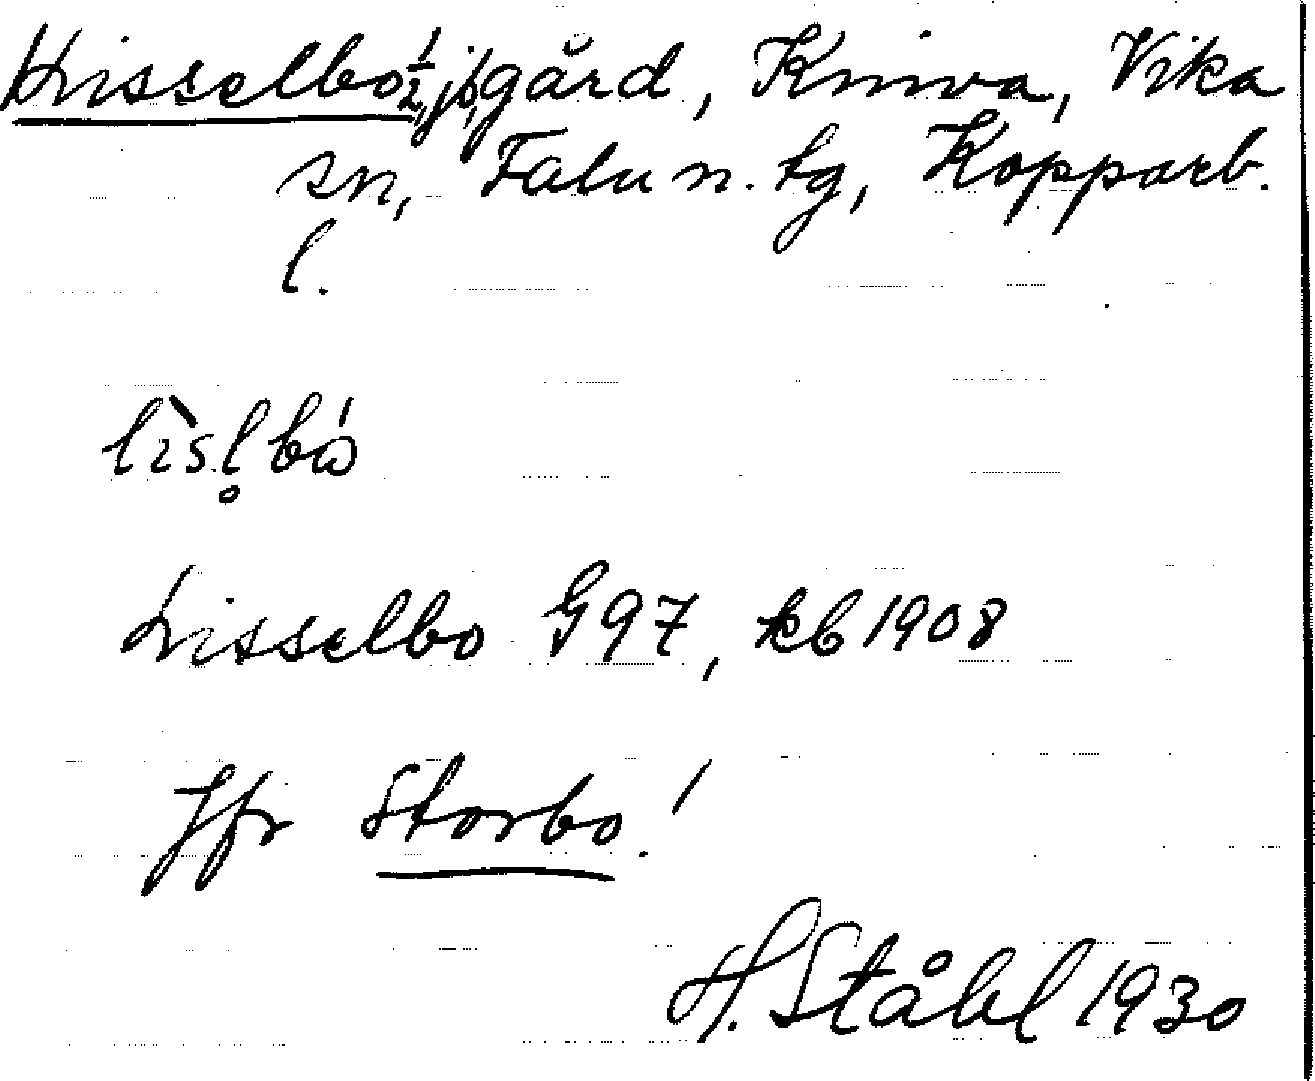 Lisselbo ½, js, gård, Kniva, Vika
sn, Falu n. tg, Kopparb.
l.
lìsl̥bó
Lisselbo G97, kb 1908
Jfr Storbo!
H. Ståhl 1930